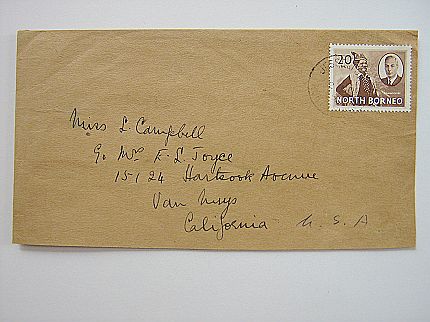 20
NORTH BORNEO
Miss L. Campbell
c/o Mrs E. L. Joyce
15124 Hartsook Avenue
Van Nuys
California U. S. A